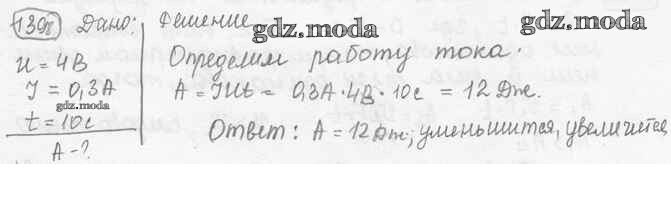 1398 Дано: Решение
gdz.moda
gdz.moda
U = 4В
Определим работу тока.
I = 0,3А
gdz.moda
A = IUt = 0,3А·4В·10с = 12 Дж.
t = 10с
Ответ: A = 12 Дж; уменьшится, увеличится
A - ?